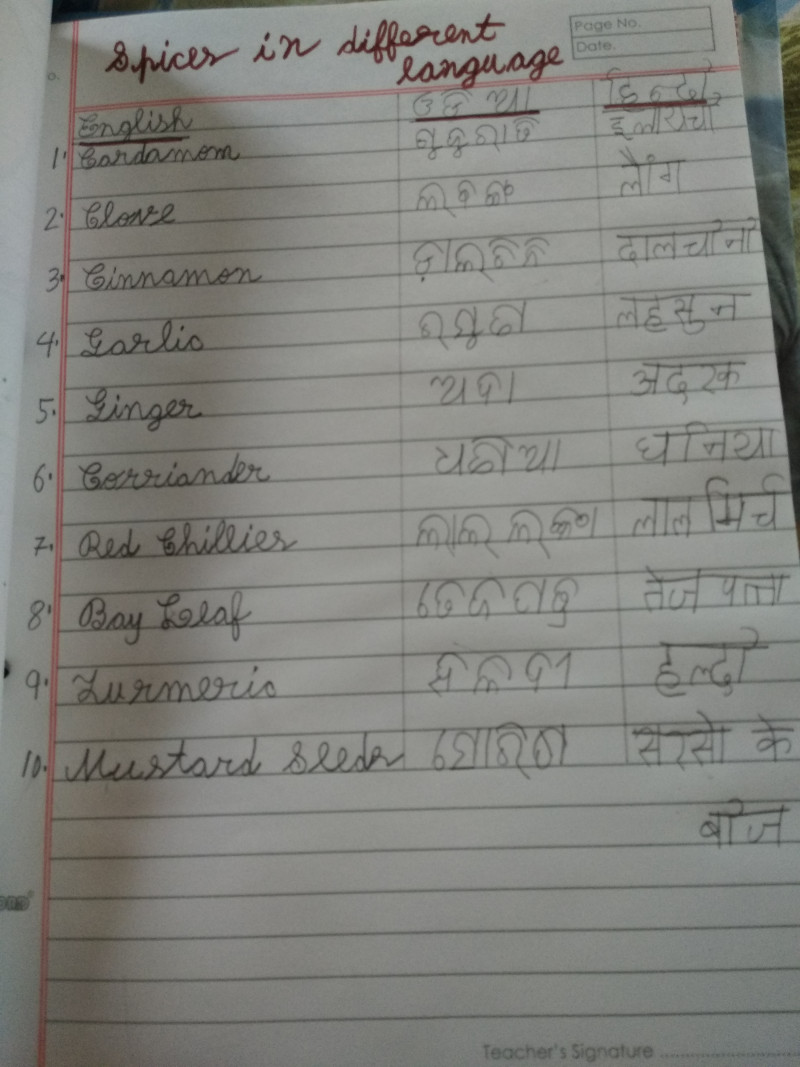 Page No.
Date.
Spices in different
language
English ଓଡିଆ हिन्दी
1. Cardamom ଗୁଜୁରାତି इलायची
2. Clove ଲବଙ୍ଗ लौंग
3. Cinnamon ଡ଼ାଲଚିନି दालचीनी
4. Garlic ରସୁଣ लहसुन
5. Ginger ଅଦା अदरक
6. Corriander ଧନିଆ धनिया
7. Red Chillies ଲାଲ ଲଙ୍କା लाल मिर्च
8. Bay Leaf ତେଜପତ୍ର तेज पत्ता
9. Turmeric हल्दी
10. Mustard Seeds ସୋରିଷ सरसो के
बीज
Teacher's Signature